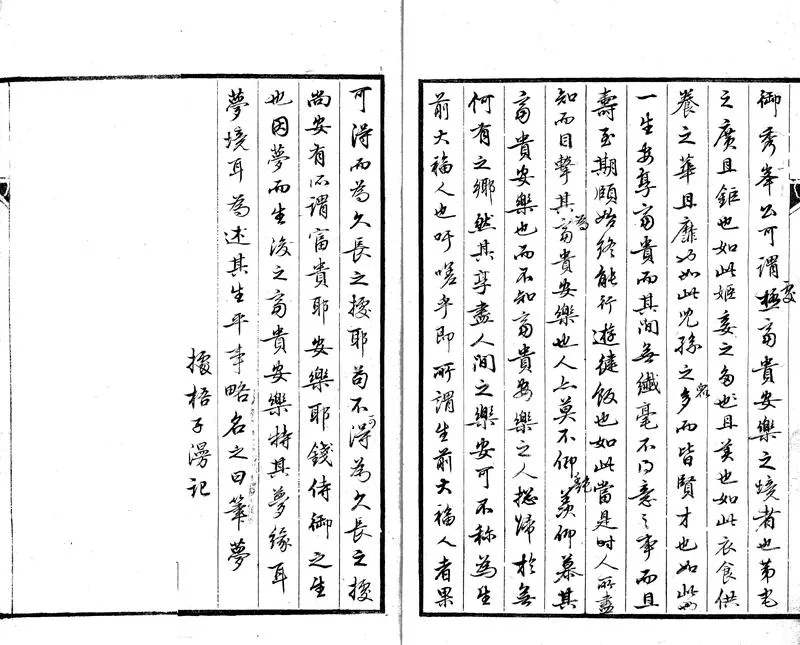 御秀峯公可謂極富貴安樂之境者也第宅
之廣且鉅也如此姬妾之多也且美也如此衣食供
養之華且靡也如此兒孫之多而皆賢才也如此
一生安享富貴而其間無纖毫不得意之事而且
壽至期頤始終能行遊健飯也如此當是時人所盡
知而目擊其為富貴安樂也人亦莫不仰羨仰慕其
富貴安樂也而不知富貴安樂之人總歸於無
何有之鄉然其享盡人間之樂安可不称為生
前大福人也吁嗟乎即所謂生前大福人者果
可得而為久長之據耶苟不可得為久長之據
尚安有所謂富貴耶安樂耶錢侍御之生
也因夢而生後之富貴安樂特其夢緣耳
夢境耳為述其生平事略名之曰筆夢
據梧子漫記